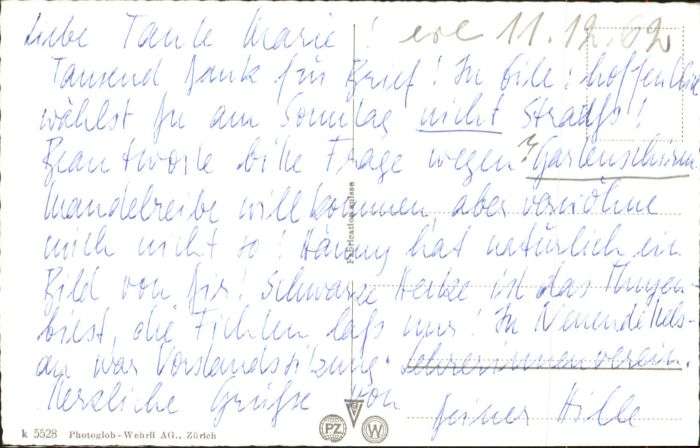 Liebe Tante Marie! erl 11.12.62
Tausend Dank für Brief! In Eile: hoffentlich
wählst Du am Sonntag nicht Strauß!
Beantworte bitte Frage wegen Gartenschirm!
Mandelreibe willkommen, aber verwöhne
mich nicht so! Hänny hat natürlich ein
Bild von Dir! Schwarze Hecke ist das
die Fichten laß nur! In Neuendettels-
au war Vorstandssitzung. Lehrerinnenverein.
Herzliche Grüße von
Deiner Hille
Fabrication suisse
k 5528 Photoglob-Wehrli AG., Zürich
PZ W